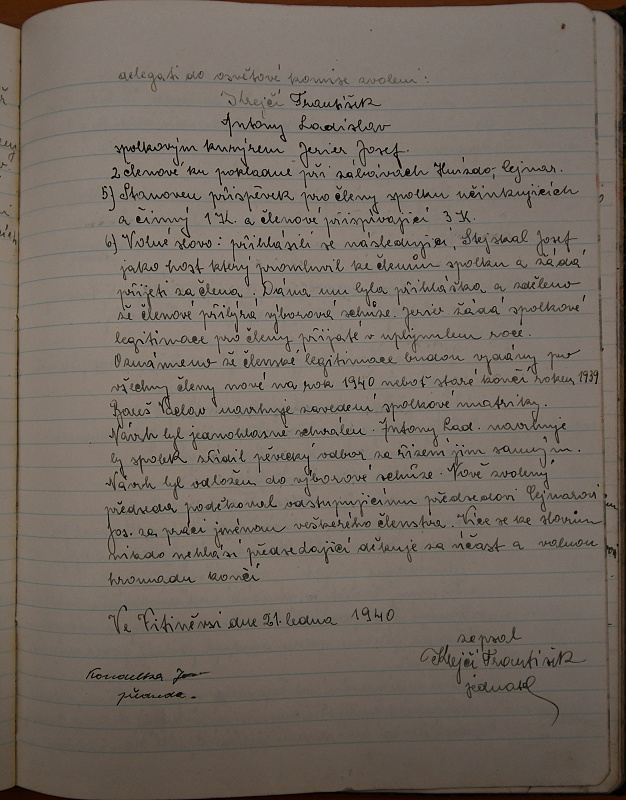 delegáti do osvětové komise zvoleni:
Krejčí František
Antóny Ladislav
spolkovým kurýrem Jerier Josef.
2 členové ku pokladně při zábavách Hnízdo, Cejnar.
5) Stanoven příspěvek pro členy spolku učinkujících
a činný 1 K. a členové přispívající 3 K.
6) Volné slovo: přihlásili se následující, Stejskal Josef
jako host který promluvil ke členům spolku a žádá
přijetí za člena. Dána mu byla přihláška a sděleno
že členové přibýrá výborová schůze. Jerier žádá spolkové
legitimace pro členy přijaté v uplynulém roce.
Oznámeno že členské legitimace budou vydány pro
všechny členy nové na rok 1940 neboť staré končí rokem 1939
Václav navrhuje zavedení spolkové matriky.
Návrh byl jednohlasně schválen. Antony Lad. navrhuje
by spolek zřídil pěvecký odbor za řízení jím samým.
Návrh byl odložen do výborové schůze. Nově zvolený
předseda poděkoval odstupujícímu předsedovi Cejnarovi
Jos. za práci jménem veškerého členstva. Více se ke slovům
nikdo nehlásí předsedající děkuje za účast a valnou
hromadu končí
Ve Vitiněvsi dne 21. ledna 1940
zapsal
Krejčí František
jednatel
předseda.